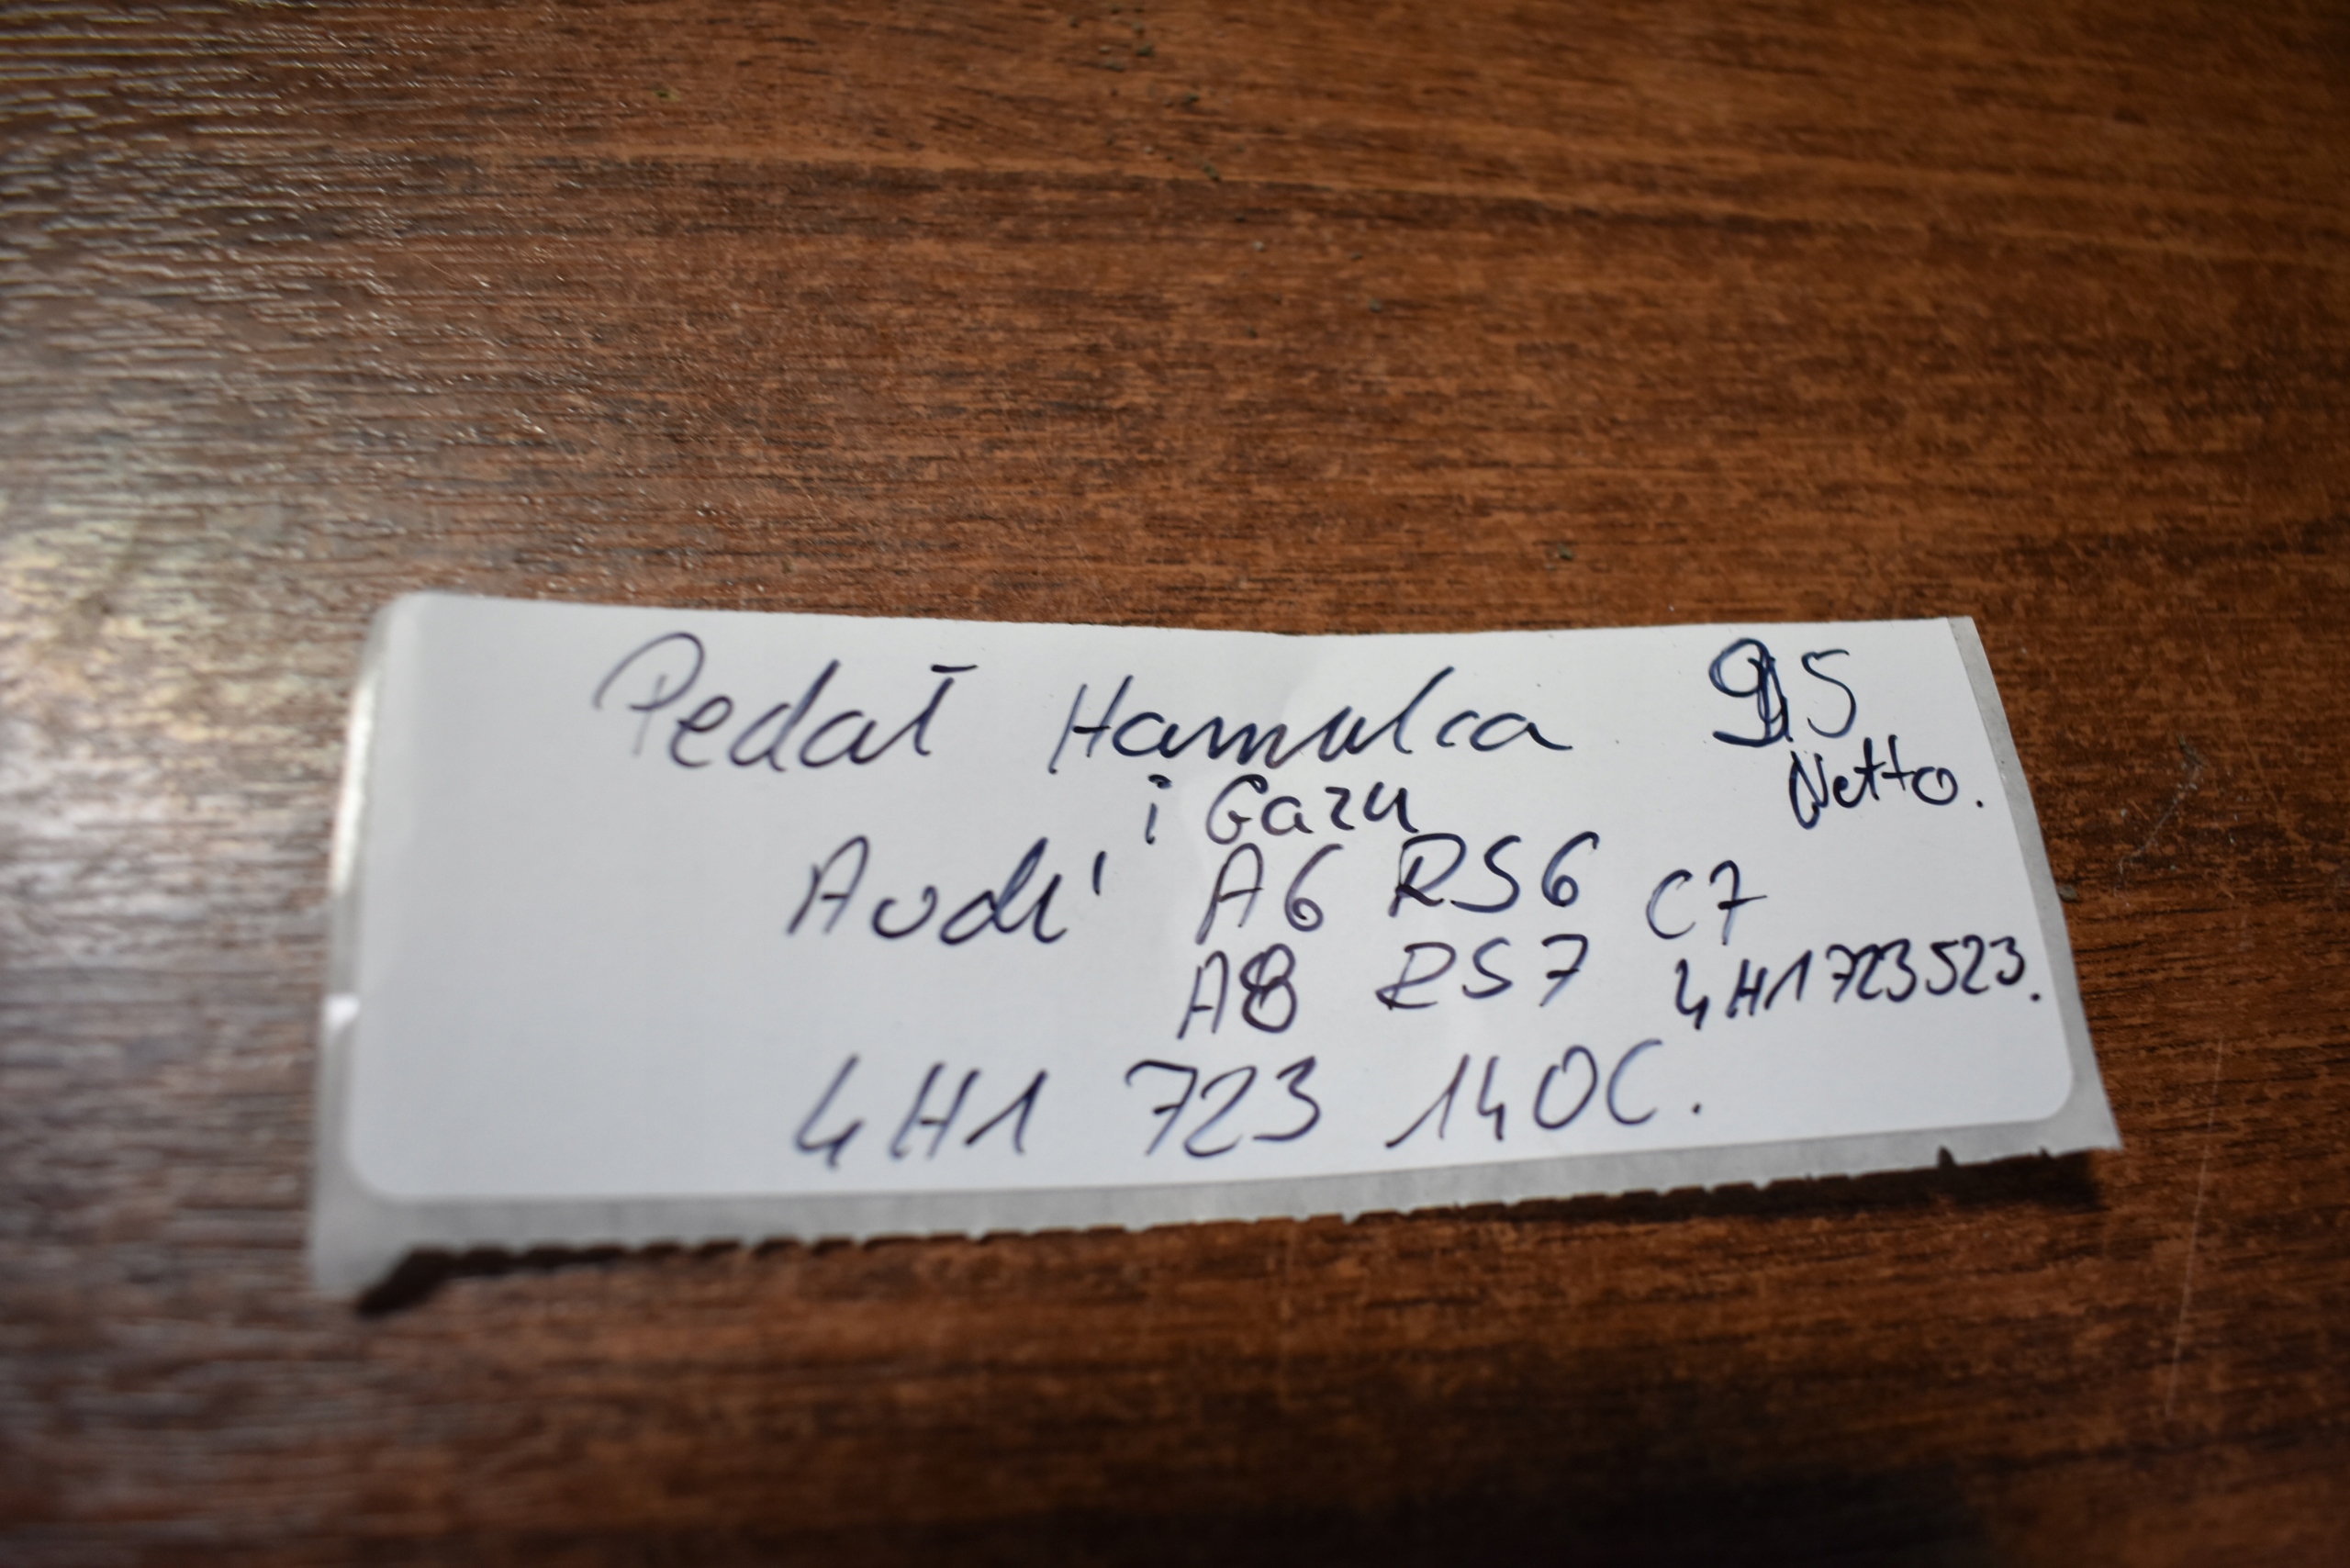 Pedał Hamulca 95
i Gazu Netto.
Audi A6 RS6 C7
A8 RS7 4H1723523.
4H1 723 140C.